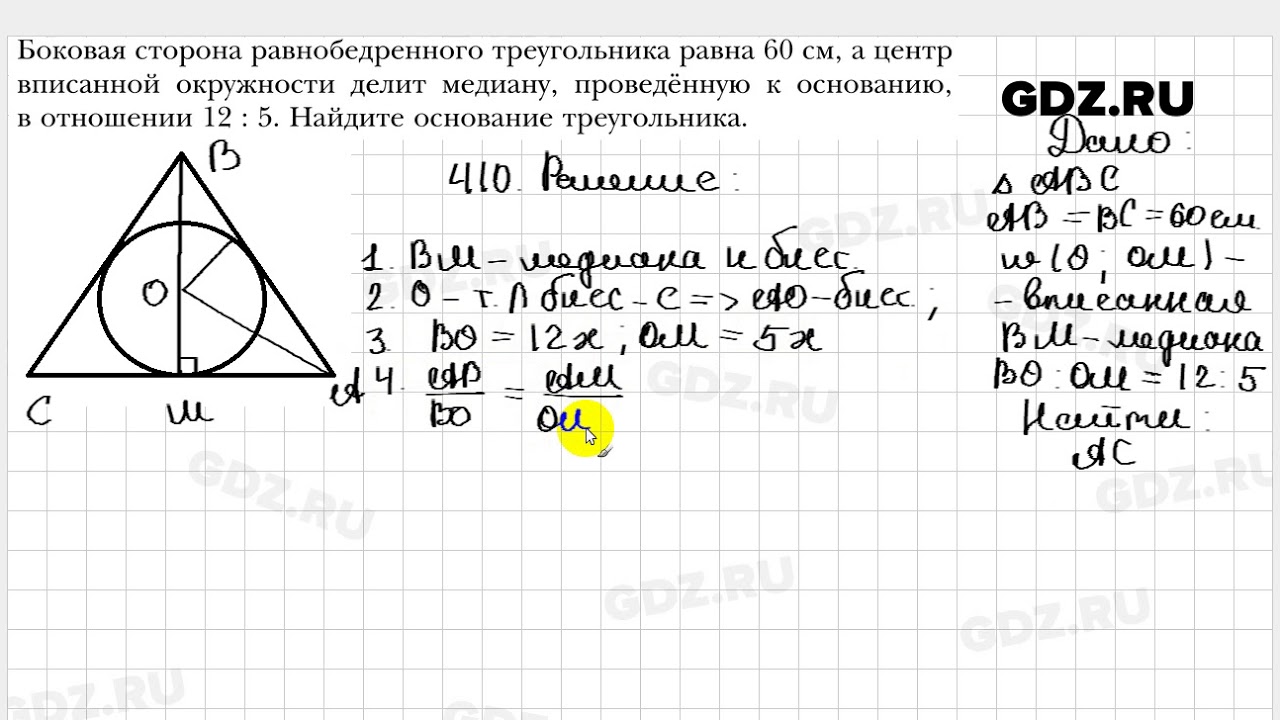 Боковая сторона равнобедренного треугольника равна 60 см, а центр
вписанной окружности делит медиану, проведённую к основанию,
в отношении 12 : 5. Найдите основание треугольника.
GDZ.RU
Дано:
Δ ABC
AB = BC = 60 см.
w (O; OM) -
- вписанная
BM - медиана
BO : OM = 12 : 5
Найти:
AC
410. Решение:
1. BM - медиана и бисс.
2. O - т. ∩ бисс - с => AO - бисс. ;
3. BO = 12x ; OM = 5x
4. AB/BO = AM/OM
B
O
C
M
A
GDZ.RU
GDZ.RU
GDZ.RU
GDZ.RU
GDZ.RU
GDZ.RU
GDZ.RU
GDZ.RU